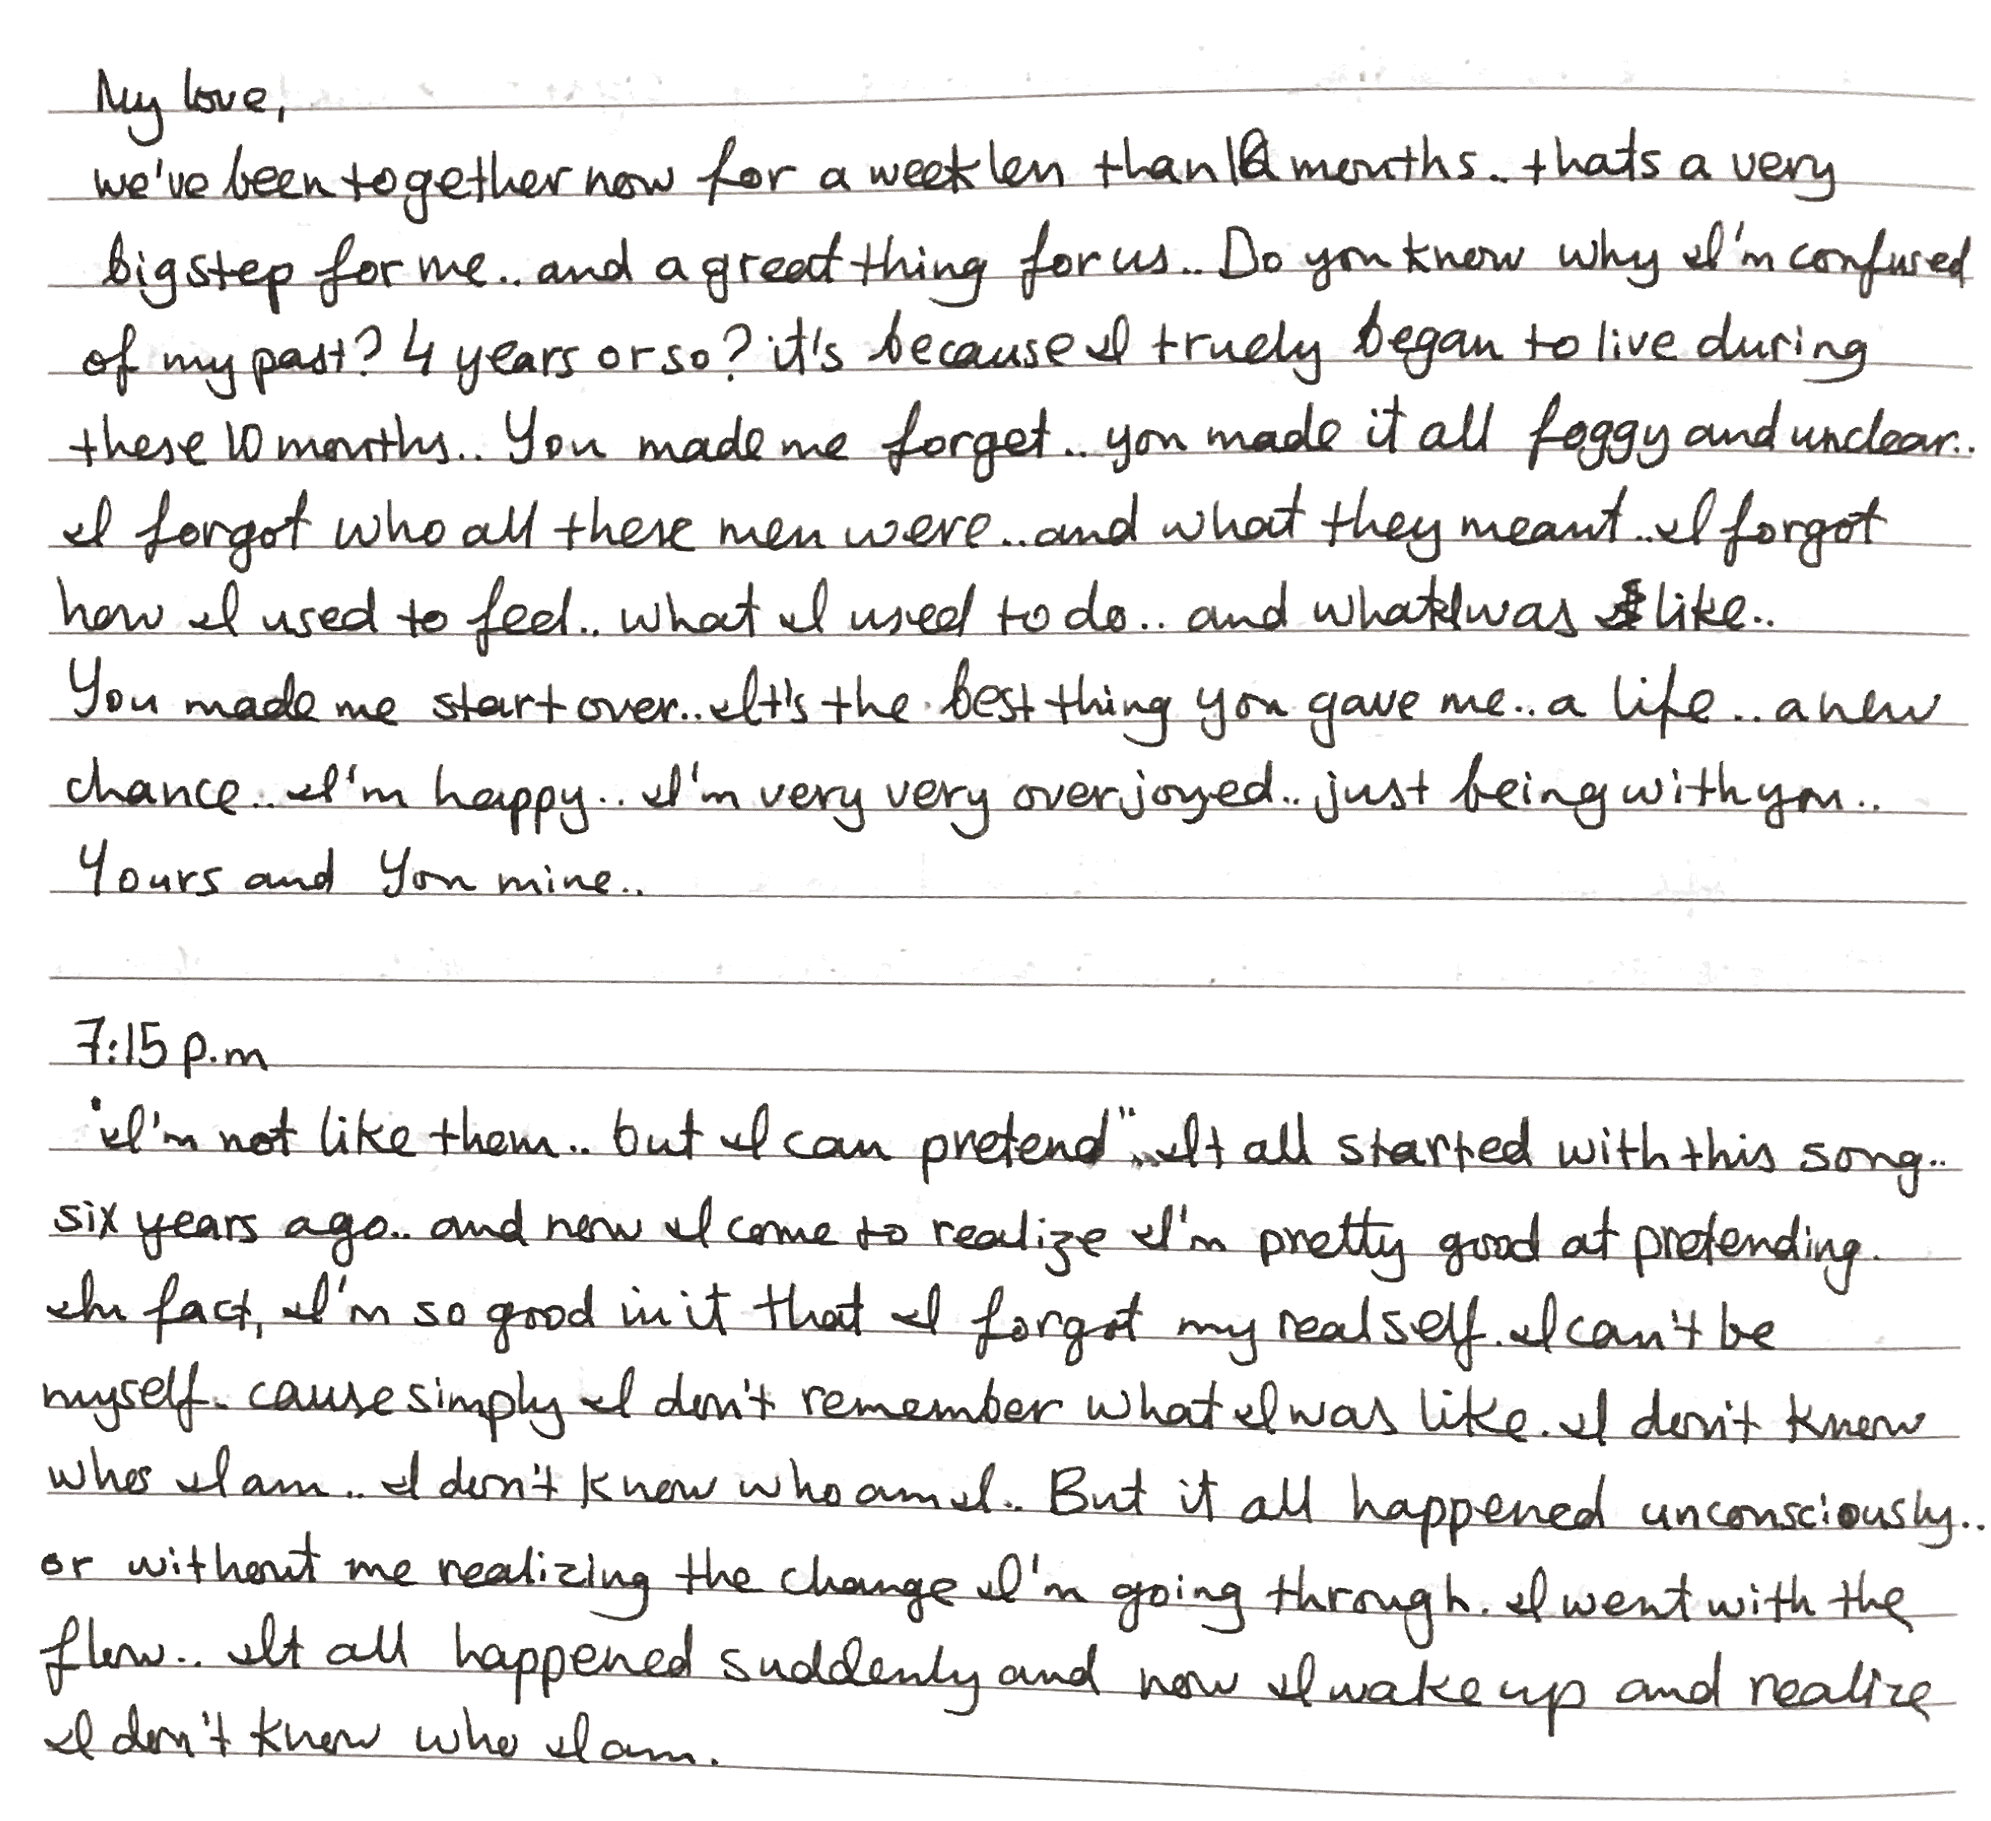 My love,
we've been together now for a week less than 10 months.. thats a very
big step for me.. and a great thing for us.. Do you know why I'm confused
of my past? 4 years or so? it's because I truely began to live during
these 10 months.. You made me forget.. you made it all foggy and unclear..
I forgot who all these men were.. and what they meant.. I forgot
how I used to feel.. what I used to do.. and what I was like..
You made me start over.. It's the best thing you gave me.. a life.. a new
chance.. I'm happy.. I'm very very overjoyed.. just being with you..
Yours and You mine..
7:15 p.m
"I'm not like them.. but I can pretend"... It all started with this song..
six years ago.. and now I come to realize I'm pretty good at pretending.
In fact, I'm so good in it that I forgot my real self. I can't be
myself. cause simply I don't remember what I was like. I don't know
who I am.. I don't know who am I.. But it all happened unconsciously..
or without me realizing the change I'm going through. I went with the
flow.. It all happened suddenly and now I wake up and realize
I don't know who I am.